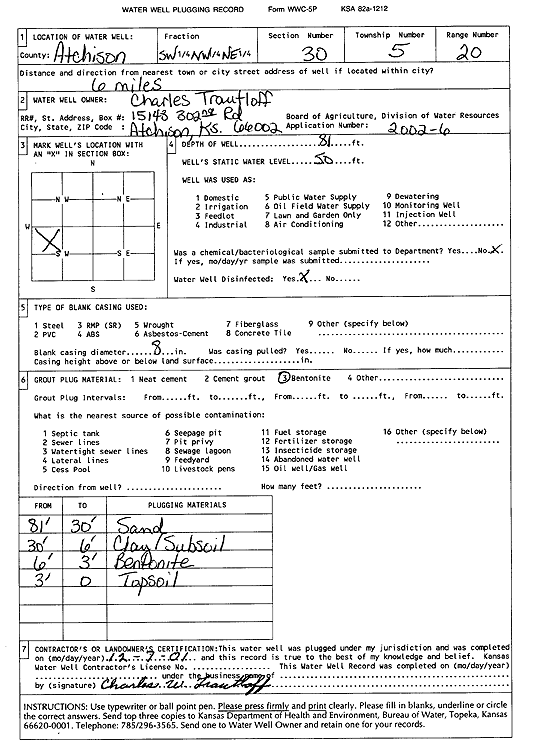 WATER WELL PLUGGING RECORD Form WWC-5P KSA 82a-1212
1 LOCATION OF WATER WELL: Fraction Section Number Township Number Range Number
County: Atchison SW 1/4 NW 1/4 NE 1/4 30 5 20
Distance and direction from nearest town or city street address of well if located within city?
6 miles
2 WATER WELL OWNER: Charles Trautloff
RR#, St. Address, Box #: 15143 302nd Rd Board of Agriculture, Division of Water Resources
City, State, ZIP Code : Atchison, KS. 66002 Application Number: 2002-6
3 MARK WELL'S LOCATION WITH AN "X" IN SECTION BOX:
N
N W N E
W E
S W S E
S
4 DEPTH OF WELL......81.....ft.
WELL'S STATIC WATER LEVEL.....50.....ft.
WELL WAS USED AS:
1 Domestic 5 Public Water Supply 9 Dewatering
2 Irrigation 6 Oil Field Water Supply 10 Monitoring Well
3 Feedlot 7 Lawn and Garden Only 11 Injection Well
4 Industrial 8 Air Conditioning 12 Other..........
Was a chemical/bacteriological sample submitted to Department? Yes....No.X.
If yes, mo/day/yr sample was submitted..................
Water Well Disinfected: Yes.X... No......
5 TYPE OF BLANK CASING USED:
1 Steel 3 RMP (SR) 5 Wrought 7 Fiberglass 9 Other (specify below)
2 PVC 4 ABS 6 Asbestos-Cement 8 Concrete Tile ........................
Blank casing diameter.....8...in. Was casing pulled? Yes...... No...... If yes, how much..........
Casing height above or below land surface....................in.
6 GROUT PLUG MATERIAL: 1 Neat cement 2 Cement grout 3 Bentonite 4 Other...................
Grout Plug Intervals: From......ft. to......ft., From......ft. to ......ft., From...... to......ft.
What is the nearest source of possible contamination:
1 Septic tank 6 Seepage pit 11 Fuel storage 16 Other (specify below)
2 Sewer lines 7 Pit privy 12 Fertilizer storage ....................
3 Watertight sewer lines 8 Sewage lagoon 13 Insecticide storage
4 Lateral lines 9 Feedyard 14 Abandoned water well
5 Cess Pool 10 Livestock pens 15 Oil well/Gas well
Direction from well? .................... How many feet? ....................
FROM TO PLUGGING MATERIALS
81' 30' Sand
30' 6' Clay/Subsoil
6' 3' Bentonite
3' 0 Topsoil
7 CONTRACTOR'S OR LANDOWNER'S CERTIFICATION: This water well was plugged under my jurisdiction and was completed
on (mo/day/year) 12-7-01 and this record is true to the best of my knowledge and belief. Kansas
Water Well Contractor's License No. .................. This Water Well Record was completed on (mo/day/year)
.................. under the business name of
by (signature) Charles W. Trautloff
INSTRUCTIONS: Use typewriter or ball point pen. Please press firmly and print clearly. Please fill in blanks, underline or circle
the correct answers. Send top three copies to Kansas Department of Health and Environment, Bureau of Water, Topeka, Kansas
66620-0001. Telephone: 785/296-3565. Send one to Water Well Owner and retain one for your records.